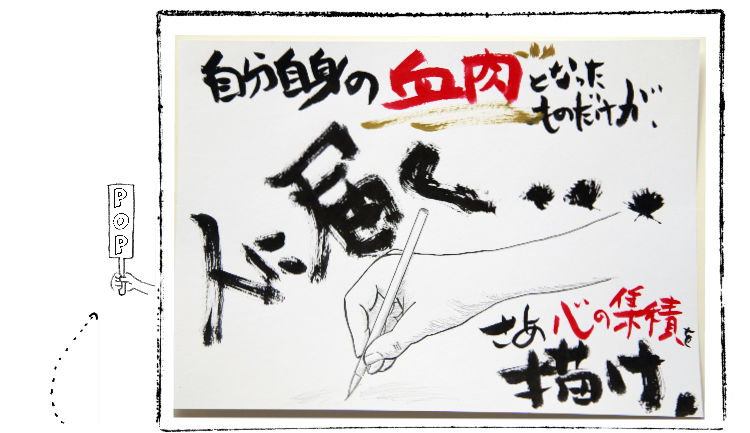 自分自身の血肉となった
ものだけが、
人に届く・・・・
さあ心の集積を
描け。
POP